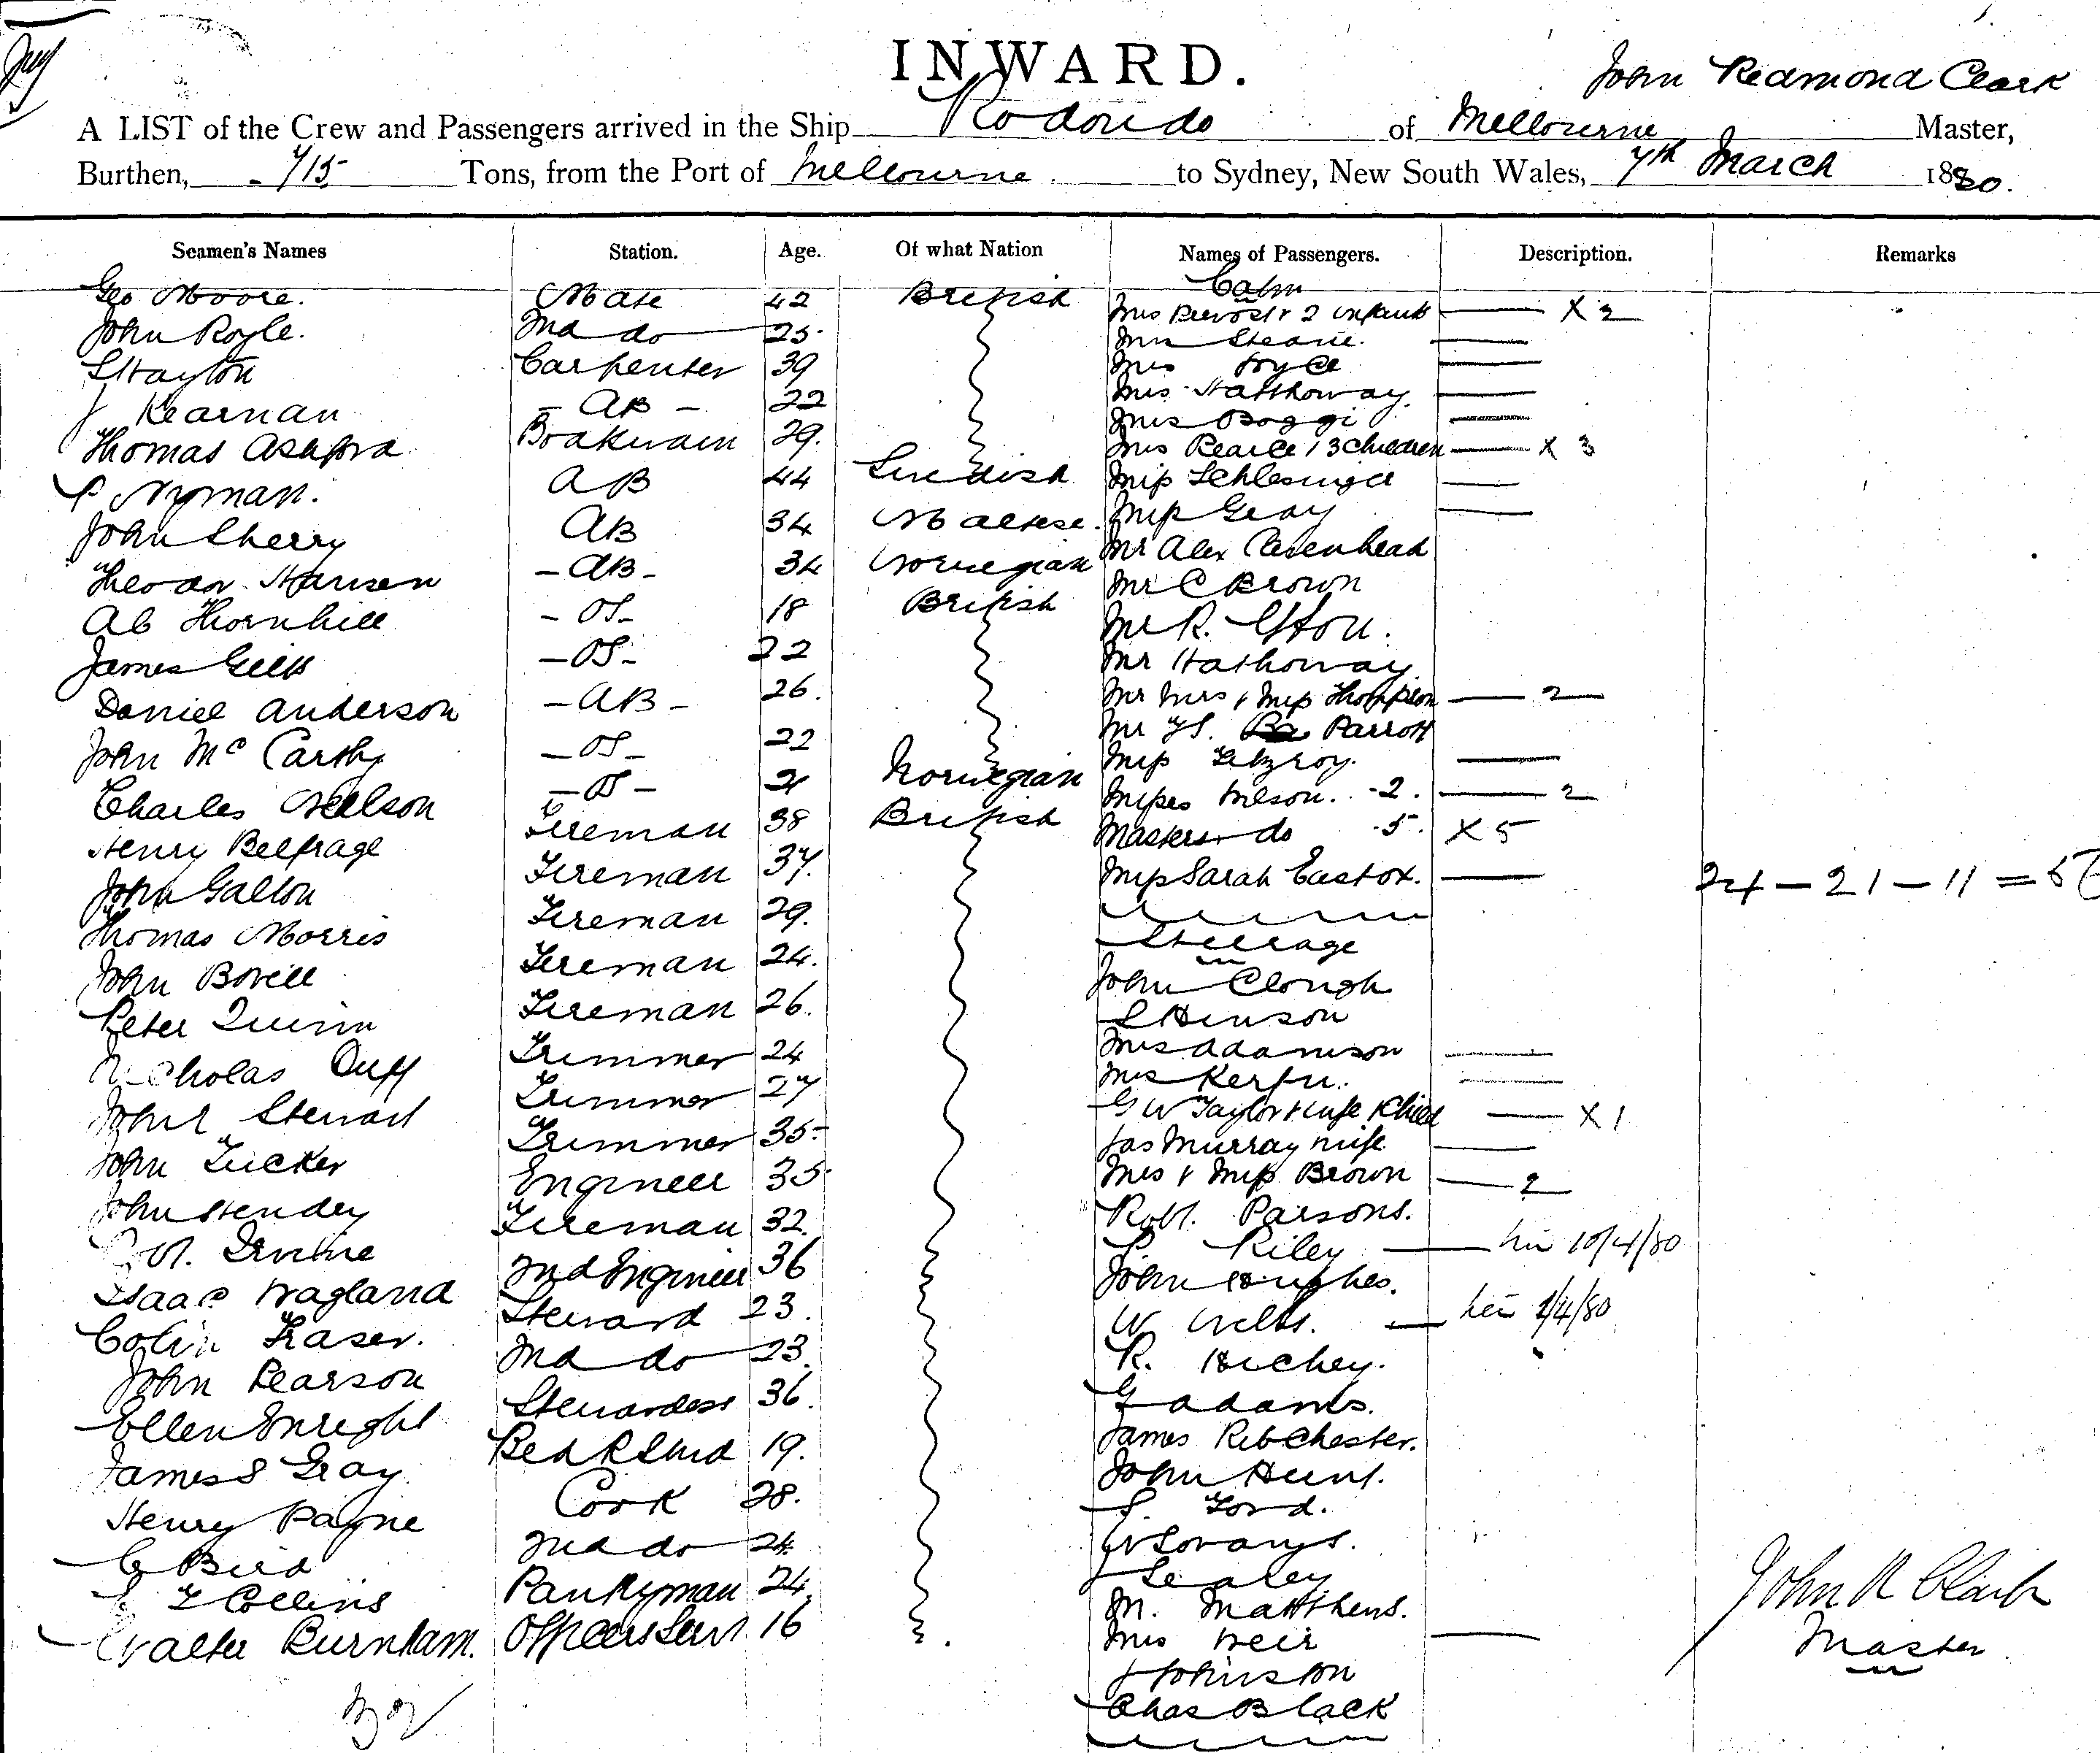 INWARD.
John Redmond Clark
A LIST of the Crew and Passengers arrived in the Ship Rodondo of Melbourne Master,
Burthen, 715 Tons, from the Port of Melbourne to Sydney, New South Wales, 7th March 1880.
Seamen's Names Station. Age. Of what Nation Names of Passengers. Description. Remarks
Cabin
Geo Moore. Mate 42 British Mrs Prevost & 2 infants X 2
John Royle. 2nd do 25 Mrs Stearie.
Hayton Carpenter 39 Mrs Joyce
J Kearnan AB 22 Mrs Hathoway.
Thomas Ashford Boatswain 29. Mrs Boggi
Mrs Pearce / 3 children X 3
P Nyman. AB 44 Swedish Miss Schlesinger
John Sherry AB 34 Maltese. Miss Geay
Theodor Hansen AB 34 Norwegian Mr Alex Risenhead
Ab Thornhill OS 18 British Mr C Brown
James Gill OS 22 Mr R.
Daniel Anderson AB 26. Mr Hathoway
John McCarthy OS 22 Mr Mrs & Miss Thompson 2
Charles Neilson OS 21 Norwegian Mr Parrott
Henry Belfrage Fireman 38 British Miss Fitzroy.
John Galton Fireman 37. Misses Wilson. 2. 2
Thomas Morris Fireman 29. Masters do 5. X 5
John Bovill Fireman 24. Miss Sarah Eastox.
24 - 21 - 11 =
Steerage
Peter Quinn Fireman 26. John Clough
Nicholas Duff Trimmer 24 S Henson
John Stewart Trimmer 27 Mrs Adamson
John Tucker Trimmer 35 Mrs
John Hendey Engineer 35 G W Taylor & wife 1 Child X 1
Irvine Fireman 32. Jas Murray wife
Isaac Wagland 2nd Engineer 36 Mrs & Miss Brown 2
Colin Fraser. Steward 23. Robt. Parsons.
John Pearson 2nd do 23. Riley 10/4/80
Ellen Enright Stewardess 36. John Hughes.
James S Gray Bed R Stwd 19. W Wells. 1/4/80
Henry Payne Cook 28. R. Hickey.
C Bird 2nd do 24. G Adams.
F Collins Pantryman 24. James Ribchester.
Walter Burnham. Officers Servt 16 John Hunt.
S. Ford.
J Sealey
M. Matthews.
Mrs Weir
J Johnston
Chas Black
John R Clark
Master